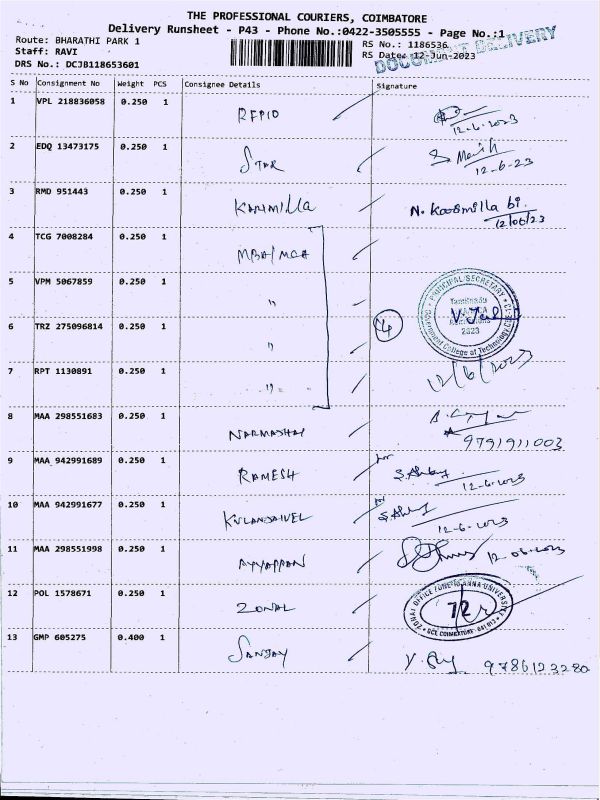 THE PROFESSIONAL COURIERS, COIMBATORE
Delivery Runsheet - P43 - Phone No.:0422-3505555 - Page No.:1
Route: BHARATHI PARK 1
RS No.: 1186536
DOCUMENT DELIVERY
Staff: RAVI
RS Date: 12-Jun-2023
DRS No.: DCJB118653601
S No Consignment No Weight PCS Consignee Details Signature
1 VPL 218836058 0.250 1 RFPIO 12-6-2023
2 EDQ 13473175 0.250 1 STAR 12-6-23
3 RMD 951443 0.250 1 KARIMILLA N. Kaosmilla bi. 12/06/23
4 TCG 7008284 0.250 1 MBA/MCA
5 VPM 5067859 0.250 1 "
PRINCIPAL SECRETARY
Tamilnadu
Admissions
2023
Government College of Technology
4
6 TRZ 275096814 0.250 1 "
7 RPT 1130891 0.250 1 " 12/6/2023
8 MAA 298551683 0.250 1 NARMADHA 9791911003
9 MAA 942991689 0.250 1 RAMESH for 12-6-2023
10 MAA 942991677 0.250 1 KULANDAIVEL for 12-6-2023
11 MAA 298551998 0.250 1 AYYAPPAN 12-06-2023
12 POL 1578671 0.250 1 ZONAL
ZONAL OFFICE ZONE 10 ANNA UNIVERSITY
72
GCT, COIMBATORE - 641 013
13 GMP 605275 0.400 1 SANJAY 9786123280